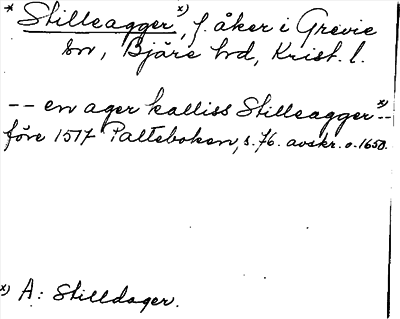 * Stilleagger x), f. åker i Grevie
sn, Bjäre hd, Krist. l.
-- en ager kalliss Stilleagger x) --
före 1517 Palteboken, s. 76. avskr. o. 1650.
x) A: Stilldager.